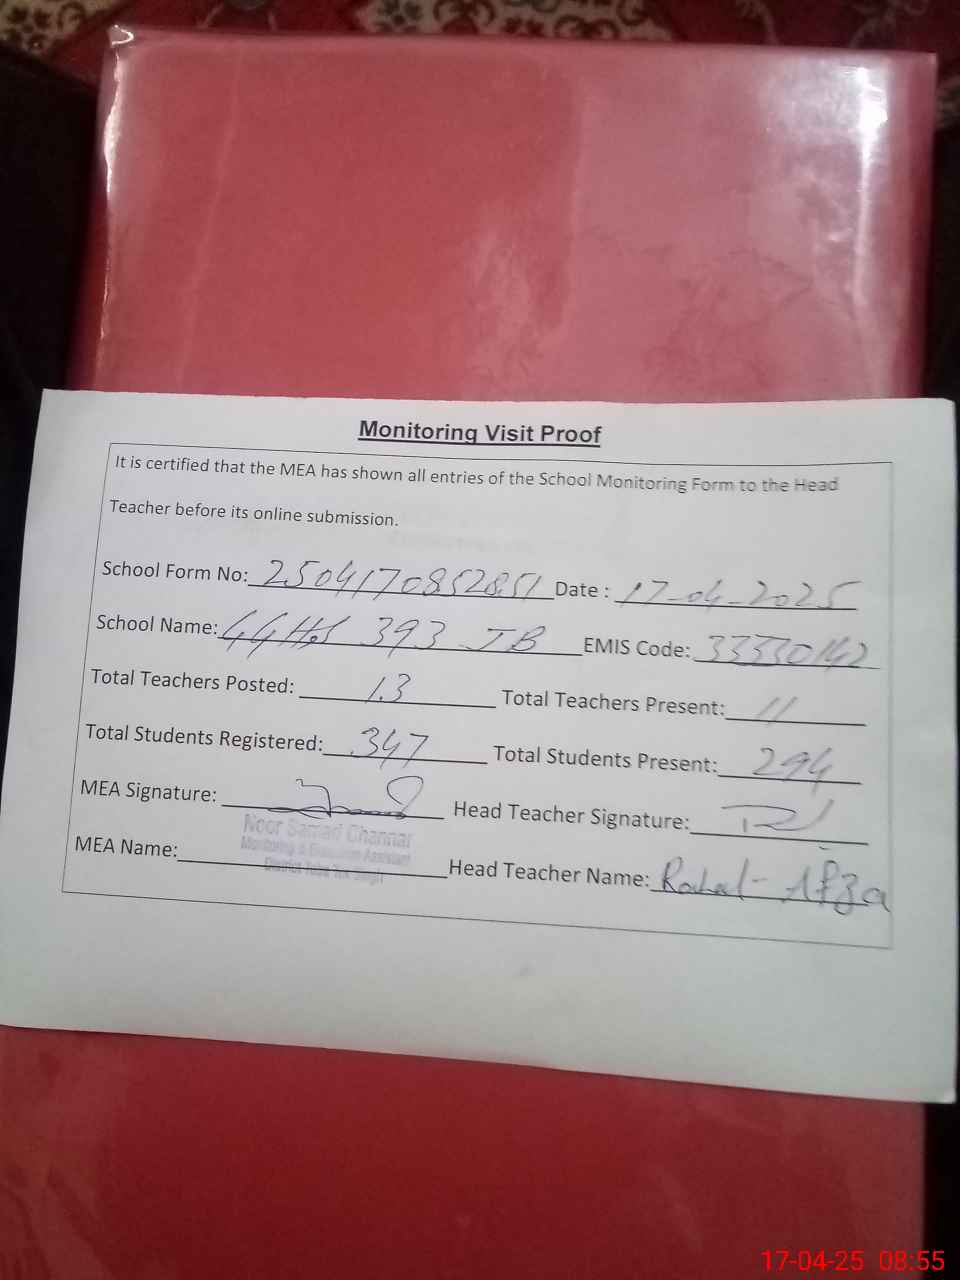 Monitoring Visit Proof
It is certified that the MEA has shown all entries of the School Monitoring Form to the Head
Teacher before its online submission.
School Form No: 2504170852851 Date : 17-04-2025
School Name: GGHS 393 JB EMIS Code: 33330142
Total Teachers Posted: 13 Total Teachers Present: 11
Total Students Registered: 347 Total Students Present: 294
MEA Signature: Head Teacher Signature:
Noor Samad Channar
Monitoring & Evaluation Assistant
District Toba Tek Singh
MEA Name: Head Teacher Name: Afza
17-04-25 08:55